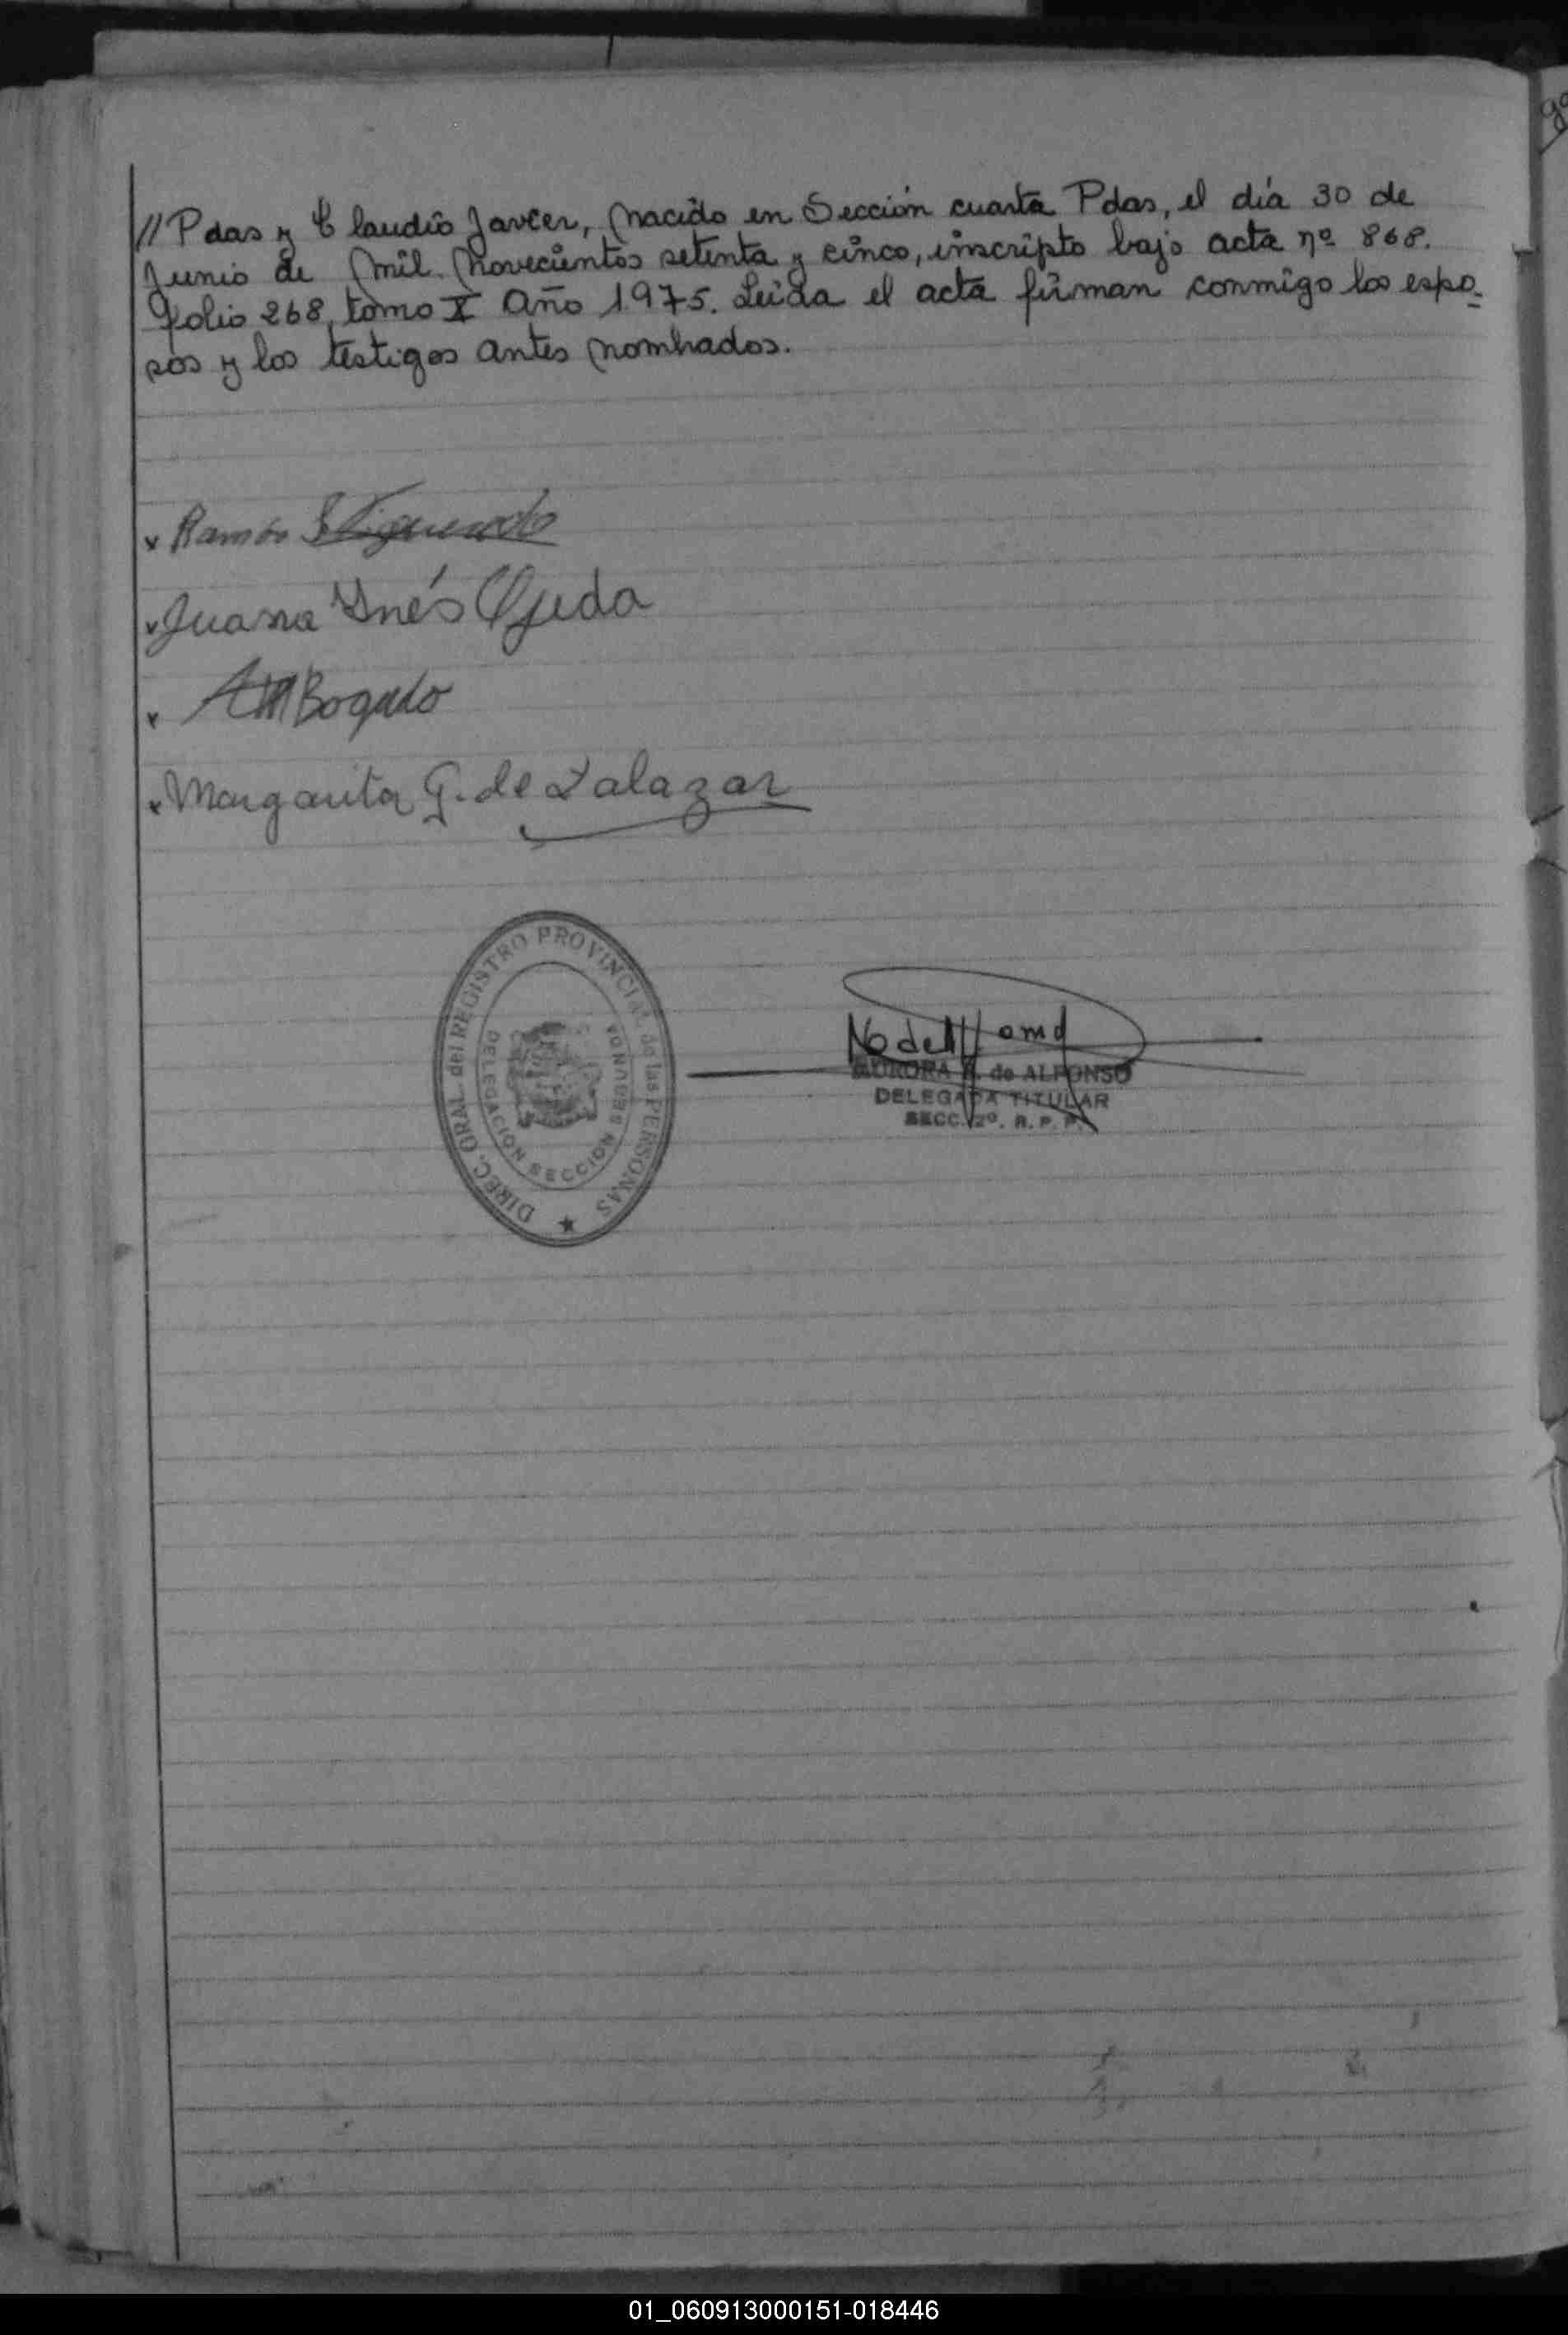 //Pdas y Claudio Javier, nacido en Sección cuarta Pdas, el día 30 de
Junio de mil novecientos setenta y cinco, inscripto bajo acta nº 868.
folio 268, tomo X Año 1.975. Leida el acta firman conmigo los espo-
sos y los testigos antes nombrados.
x Ramón Figueredo
x Juana Ynés Ojeda
x AMBogado
x Margarita G. de Zalazar
DIREC. GRAL. del REGISTRO PROVINCIAL de las PERSONAS
DELEGACION SECCION SEGUNDA
AURORA N. de ALFONSO
DELEGADA TITULAR
SECC. 2º. R. P. P.
01_060913000151-018446